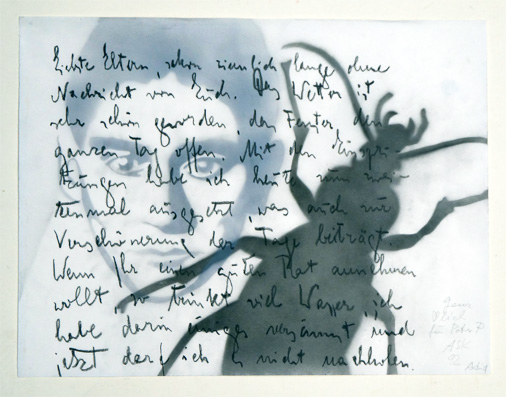 Liebste Eltern, schon ziemlich lange ohne
Nachricht von Euch. Das Wetter ist
sehr schön geworden, das Fenster den
ganzen Tag offen. Mit den Einspri-
tzungen habe ich heute zum zwei-
tenmal ausgesetzt, was auch zur
Verschönerung der Tage beiträgt.
Wenn Ihr einen guten Rat annehmen
wollt, so trinkt viel Wasser, ich
habe darin einiges versäumt und
jetzt darf ich es nicht nachholen.
für Peter P.
92